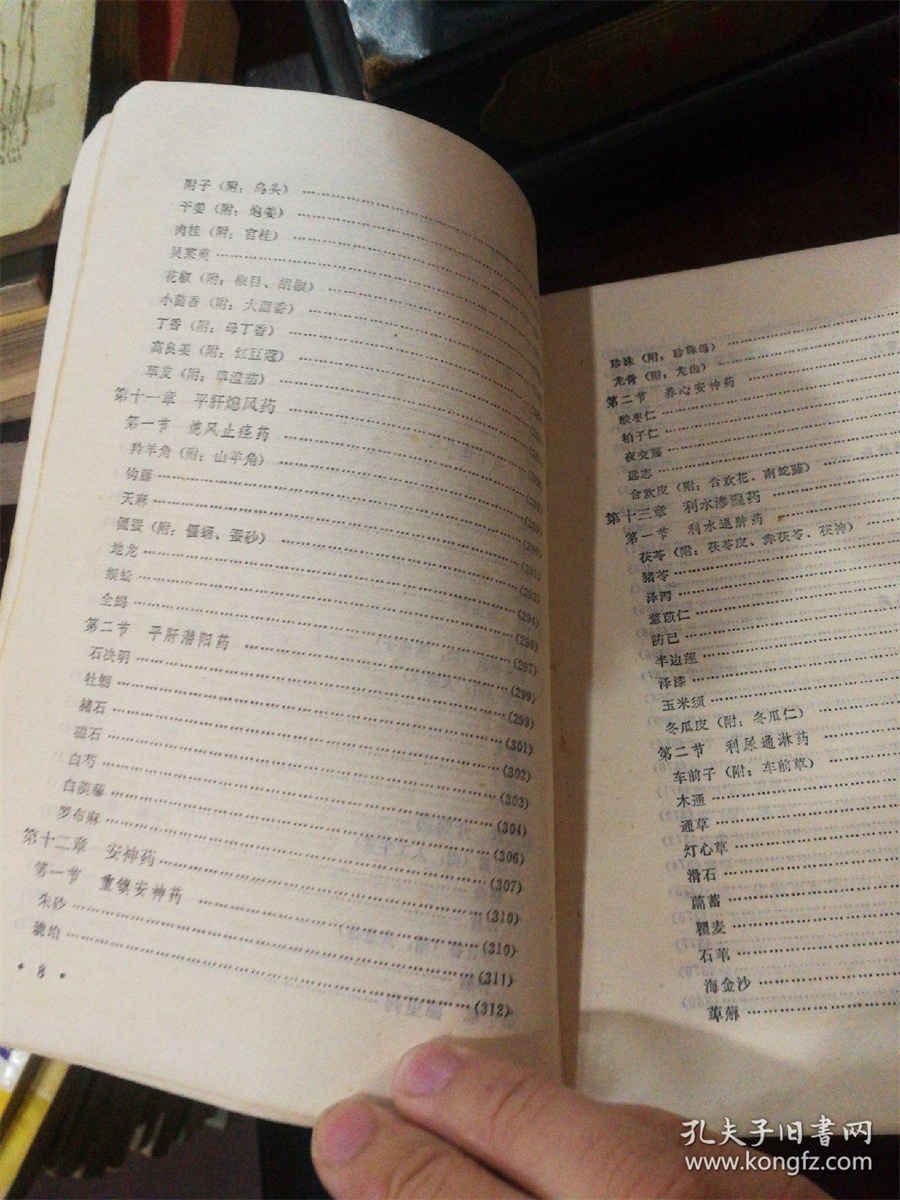 附子（附：乌头）
干姜（附：炮姜）
肉桂（附：官桂）
吴茱萸
花椒（附：椒目、胡椒）
小茴香（附：大茴香）
丁香（附：母丁香）
高良姜（附：红豆蔻）
荜茇（附：荜澄茄）
第十一章 平肝熄风药
第一节 熄风止痉药
羚羊角（附：山羊角）
钩藤
天麻
僵蚕（附：僵蛹、蚕砂）
地龙
蜈蚣 (292)
全蝎 (294)
第二节 平肝潜阳药 (296)
石决明 (297)
牡蛎 (299)
赭石 (299)
磁石 (301)
白芍 (302)
白蒺藜 (303)
罗布麻 (304)
第十二章 安神药 (306)
第一节 重镇安神药 (307)
朱砂 (310)
琥珀 (310)
(311)
(312)
• 8 •
珍珠（附：珍珠母）
龙骨（附：龙齿）
第二节 养心安神药
酸枣仁
柏子仁
夜交藤
远志
合欢皮（附：合欢花、南蛇藤）
第十三章 利水渗湿药
第一节 利水退肿药
茯苓（附：茯苓皮、赤茯苓、茯神）
猪苓
泽泻
薏苡仁
防己
半边莲
泽漆
玉米须
冬瓜皮（附：冬瓜仁）
第二节 利尿通淋药
车前子（附：车前草）
木通
通草
灯心草
滑石
萹蓄
瞿麦
石苇
海金沙
萆薢
孔夫子旧书网
www.kongfz.com